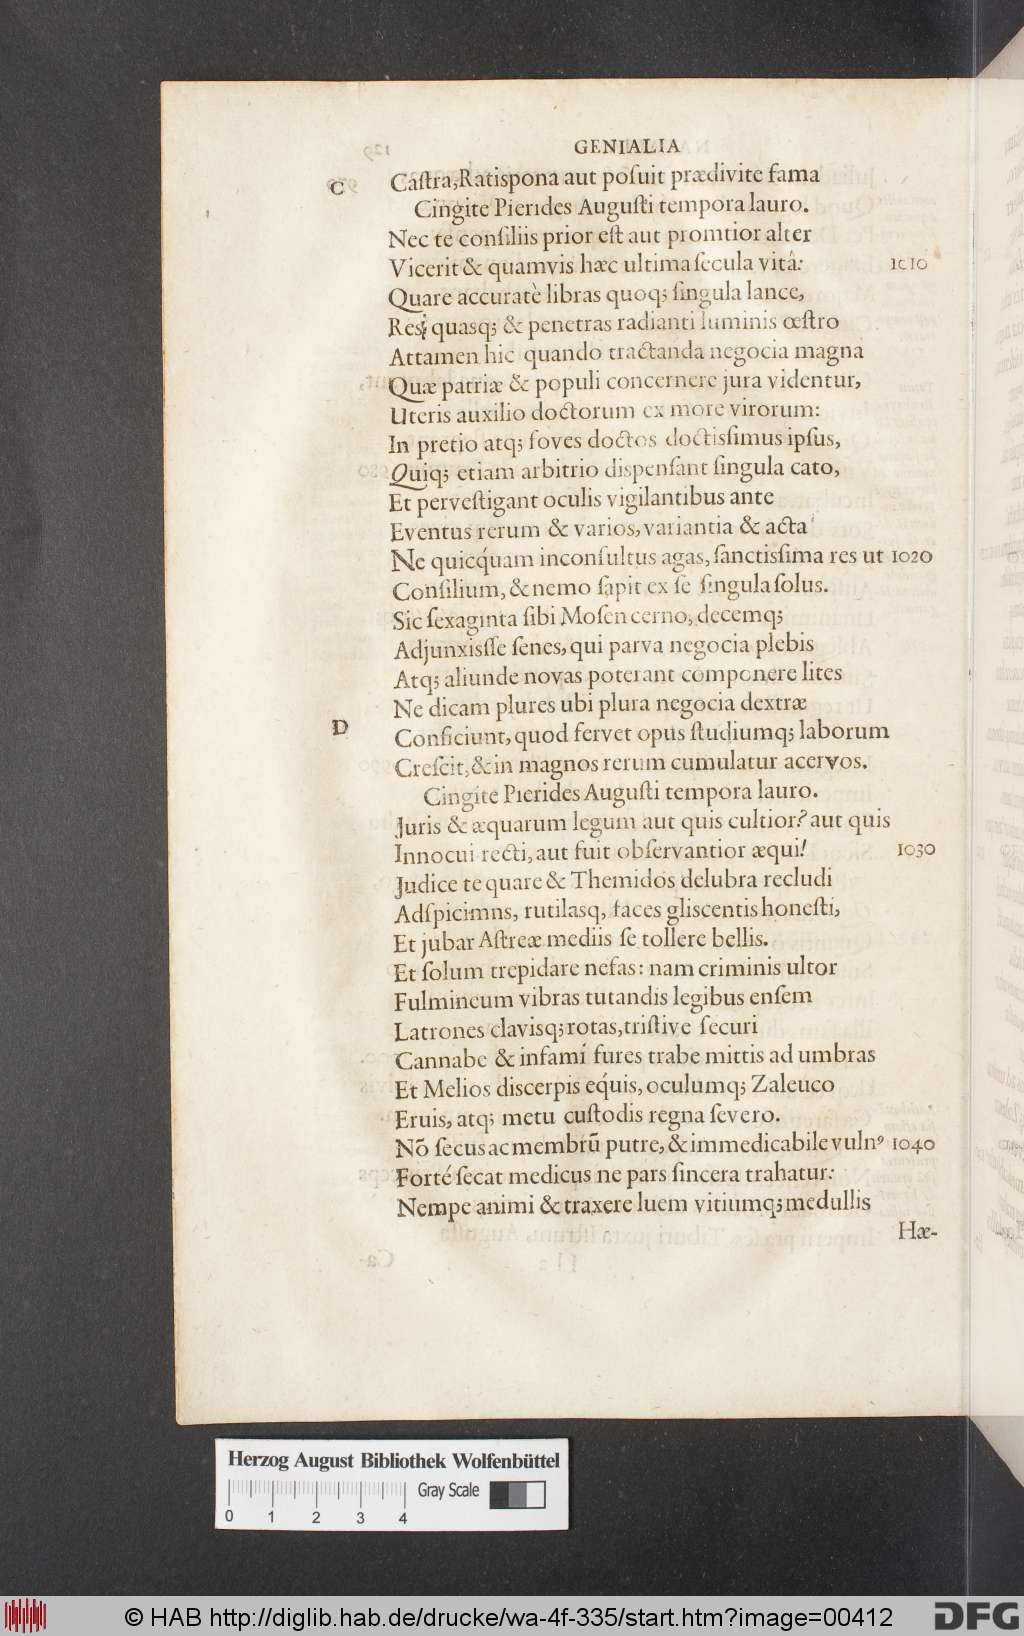 GENIALIA
C Caſtra, Ratispona aut poſuit prædivite fama
Cingite Pierides Auguſti tempora lauro.
Nec te conſiliis prior eſt aut promtior alter
Vicerit & quamvis hæc ultima ſecula vitâ: 1010
Quare accuratè libras quoq; ſingula lance,
Resq; quasq; & penetras radianti luminis œſtro
Attamen hic quando tractanda negocia magna
Quæ patriæ & populi concernere jura videntur,
Uteris auxilio doctorum ex more virorum:
In pretio atq; foves doctos doctisſimus ipſus,
Quiq; etiam arbitrio dispenſant ſingula cato,
Et perveſtigant oculis vigilantibus ante
Eventus rerum & varios, variantia & acta
Ne quicq́uam inconſultus agas, ſanctisſima res ut 1020
Conſilium, & nemo ſapit ex ſe ſingula ſolus.
Sic ſexaginta ſibi Moſen cerno, decemq;
Adjunxisſſe ſenes, qui parva negocia plebis
Atq; aliunde novas poterant componere lites
Ne dicam plures ubi plura negocia dextræ
D Conficiunt, quod fervet opus ſtudiumq; laborum
Creſcit, & in magnos rerum cumulatur acervos.
Cingite Pierides Auguſti tempora lauro.
Juris & æquarum legum aut quis cultior? aut quis
Innocui recti, aut fuit obſervantior æqui! 1030
Judice te quare & Themidos delubra recludi
Adſpicimns, rutilasq, faces gliscentis honeſti,
Et jubar Aſtreæ mediis ſe tollere bellis.
Et ſolum trepidare nefas: nam criminis ultor
Fulmineum vibras tutandis legibus enſem
Latrones clavisq; rotas, triſtive ſecuri
Cannabe & infamí fures trabe mittis ad umbras
Et Melios discerpis eq́uis, oculumq; Zaleuco
Eruis, atq; metu cuſtodis regna ſevero.
Nõ ſecus ac membrũ putre, & immedicabile vulnꝰ 1040
Forté ſecat medicus ne pars ſincera trahatur:
Nempe animi & traxere luem vitiumq; medullis
Hæ-
Herzog August Bibliothek Wolfenbüttel
Gray Scale
0 1 2 3 4
© HAB http://diglib.hab.de/drucke/wa-4f-335/start.htm?image=00412
DFG